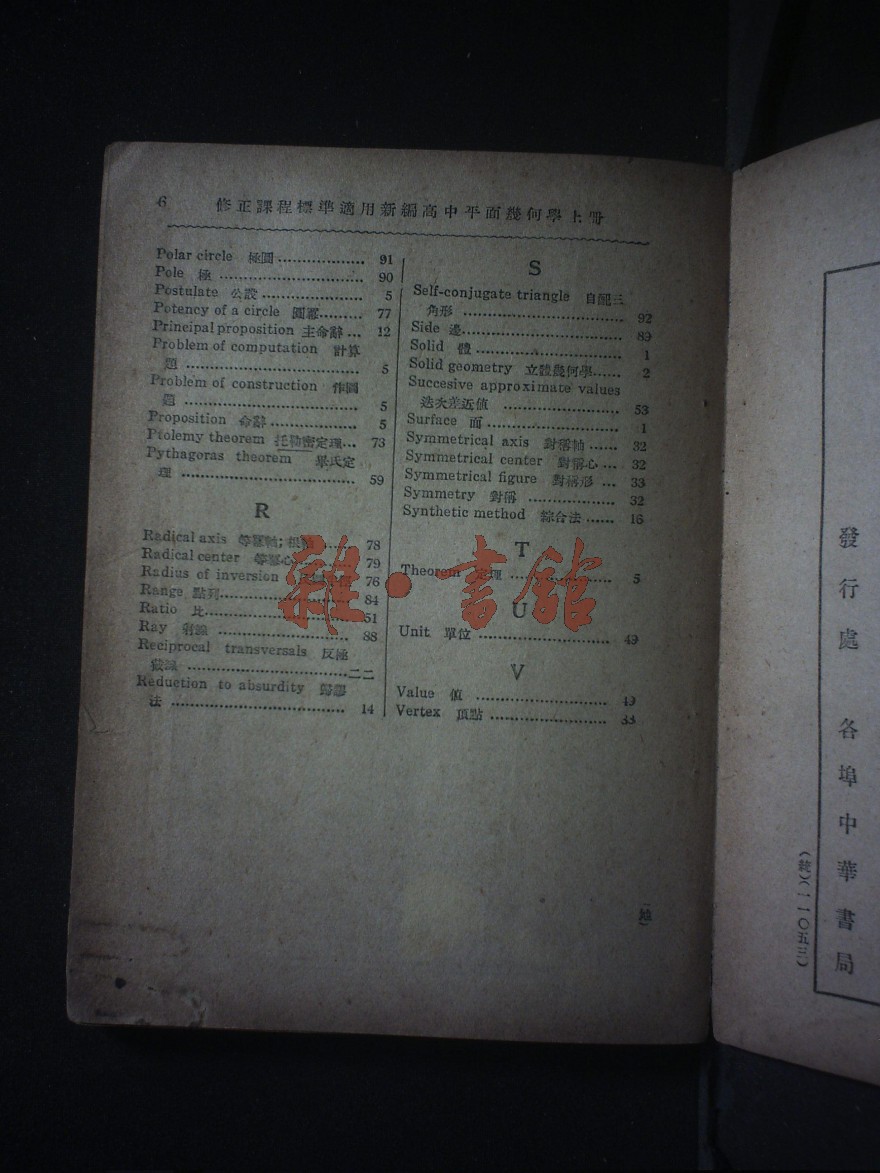 6 修正課程標準適用新編高中平面幾何學上冊
Polar circle 極圓 .................. 91
Pole 極 .............................. 90
Postulate 公設 ..................... 5
Potency of a circle 圓冪 ......... 77
Principal proposition 主命辭 ... 12
Problem of computation 計算
題 ..................................... 5
Problem of construction 作圖
題 ..................................... 5
Proposition 命辭 ..................... 5
Ptolemy theorem 托勒密定理... 73
Pythagoras theorem 畢氏定
理 ..................................... 59
R
Radical axis 等冪軸; 根軸 ...... 78
Radical center 等冪心 ............ 79
Radius of inversion ... 76
Range 點列........................... 84
Ratio 比 .............................. 51
Ray 射線 .............................. 88
Reciprocal transversals 反極
截線 ..................................二二
Reduction to absurdity 歸謬
法 ..................................... 14
S
Self-conjugate triangle 自配三
角形 .................................. 92
Side 邊 ................................. 89
Solid 體 ................................. 1
Solid geometry 立體幾何學...... 2
Succesive approximate values
迭次差近値 ........................ 53
Surface 面 .............................. 1
Symmetrical axis 對稱軸 ...... 32
Symmetrical center 對稱心 ... 32
Symmetrical figure 對稱形 ... 33
Symmetry 對稱 .................. 32
Synthetic method 綜合法 ...... 16
T
Theorem 定理 ..................... 5
U
Unit 單位 ........................... 49
V
Value 值 ........................... 49
Vertex 頂點 ........................ 33
雜·書館
發行處 各埠中華書局
(統)(一一〇五三)